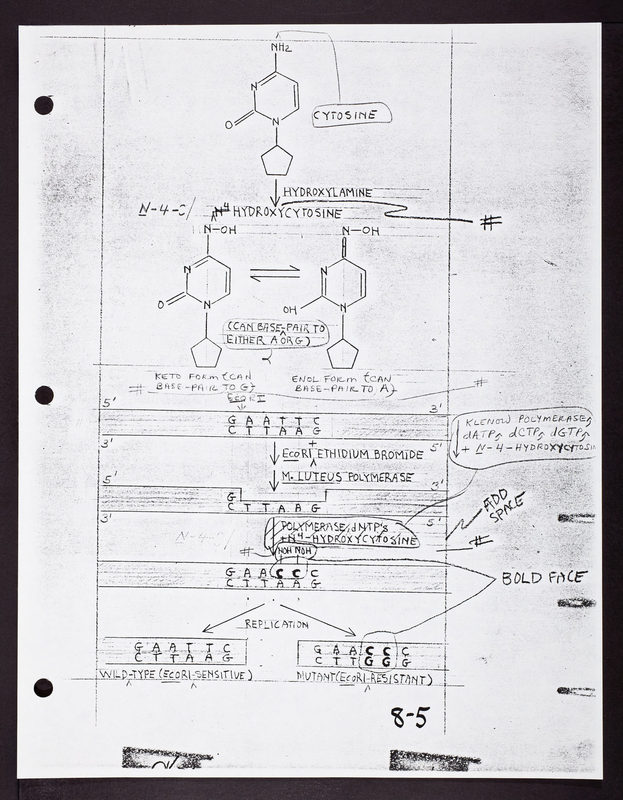 NH2
N
O
N
CYTOSINE
HYDROXYLAMINE
N-4-C/ N4 HYDROXYCYTOSINE
#
N-OH
N-OH
N
N
O
N
OH
N
(CAN BASE-PAIR TO
EITHER A OR G)
KETO FORM (CAN
BASE-PAIR TO G)
ENOL FORM (CAN
BASE-PAIR TO A)
#
#
5'
3'
GAATTC
CTTAAG
3'
5'
KLENOW POLYMERASE,
dATP, dCTP, dGTP,
+ N-4-HYDROXYCYTOSIN
+
ECORI ETHIDIUM BROMIDE
M. LUTEUS POLYMERASE
5'
3'
G
CTTAAG
3'
5'
ADD
SPACE
POLYMERASE, dNTP's
+N4-HYDROXYCYTOSINE
#
#
NOH NOH
GAACCC
CTTAAG
BOLD FACE
REPLICATION
GAATTC
CTTAAG
GAACCC
CTTGGG
WILD-TYPE (ECORI-SENSITIVE)
MUTANT (ECORI-RESISTANT)
8-5